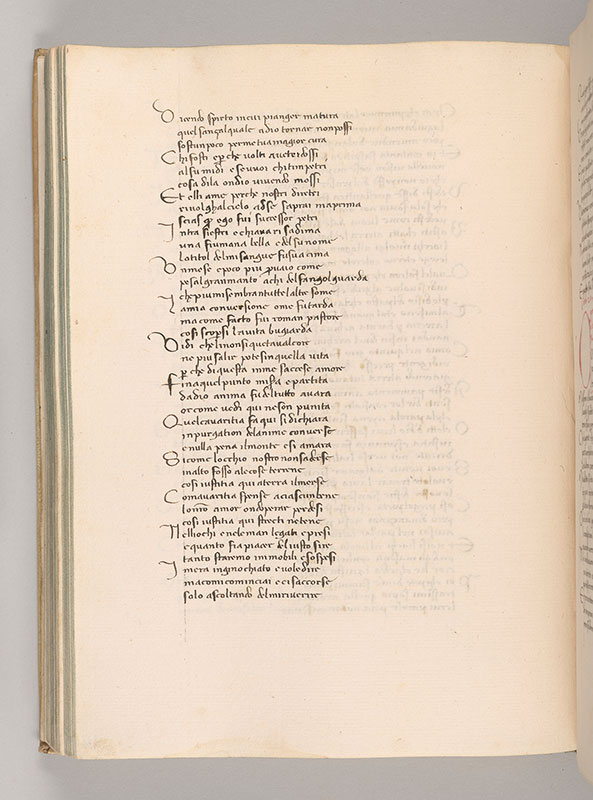 Dicendo spirto in cui pianger matura
quel sançal quale adio tornar non possi
sosta un poco per me tua magior cura
Chi fosti e perche volti avete dossi
al su mi di e se vuoi chi timpetri
cosa di la ondio vivendo mossi
Et elli ame perche nostri diretri
rivolgha l cielo a se saprai ma prima
scias quod ego fui successor petri
Intra siestri e chiavari sadima
una fiumana bella e del su nome
lo titol del mi sangue fu sua cima
Un mese e poco piu provaio come
pesa l gran manto a chi del fango l guarda
che piuma sembran tutte l altre some
La mia conversione ome fu tarda
ma come facto fui roman pastore
cosi scopsi la vita bugiarda
Vidi che li non si quetava l core
ne piu salir potesi in quella vita
per che di questa in me saccese amore
Fina quel punto misera e partita
da dio anima fui del tutto avara
or come vedi qui ne son punita
Quel cavaritia fa qui si dichiara
in purgation del anime converse
e nulla pena il monte a si amara
Si come locchio nostro non saderse
in alto fisso ale cose terrene
cosi iustitia qui a terra il merse
Come avaritia spense a ciascun bene
lo nostro amor onde operar perdesi
cosi iustitia qui strecti ne tene
Nelli ochi e ne le man legati e presi
e quanto fia piacer del iusto sire
tanto staremo immobili e sospesi
I mera inginochiato e volea dire
ma comi cominciai e ei saccorse
solo ascoltando del mi riverire